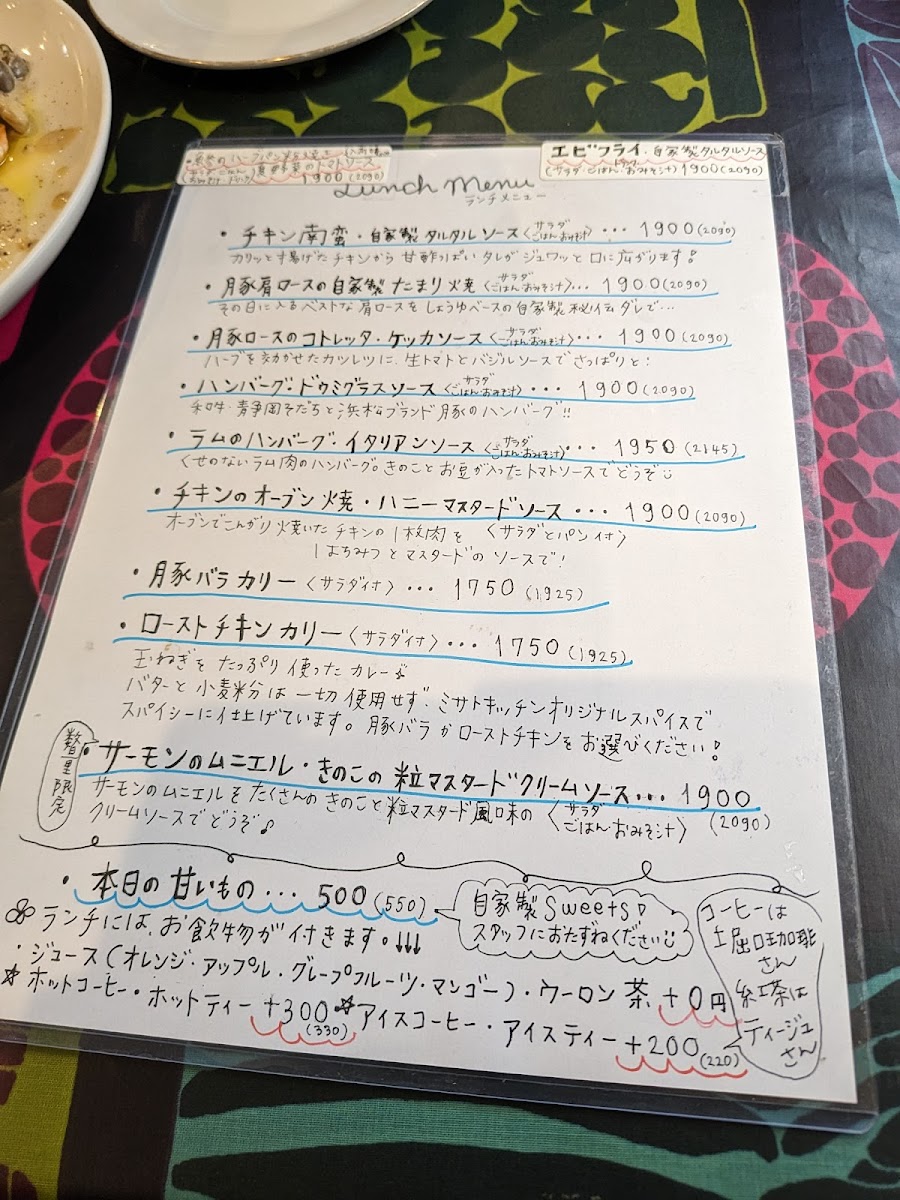 ハーブパン粉焼き
夏野菜のトマトソース
1900(2090)
エビフライ・自家製タルタルソース
(サラダ・ごはん・おみそ汁) 1900(2090)
Lunch Menu
ランチメニュー
・チキン南蛮・自家製タルタルソース〈サラダ ごはん・おみそ汁〉… 1900(2090)
カリッとす揚げたチキンから甘酢っぱいタレがジュワッと口に広がります!
・月豚肩ロースの自家製たまり焼〈サラダ ごはん・おみそ汁〉… 1900(2090)
その日に入るベストな肩ロースをしょうゆベースの自家製秘伝ダレで…
・月豚ロースのコトレッタ・ケッカソース〈サラダ ごはん・おみそ汁〉… 1900(2090)
ハーブを効かせたカツレツに、生トマトとバジルソースでさっぱりと:
・ハンバーグ・ドゥミグラスソース〈サラダ ごはん・おみそ汁〉… 1900(2090)
和牛・静岡そだちと浜松ブランド月豚のハンバーグ!!
・ラムのハンバーグ・イタリアンソース〈サラダ ごはん・おみそ汁〉… 1950(2145)
くせのないラム肉のハンバーグ。きのことお豆が入ったトマトソースでどうぞ
・チキンのオーブン焼・ハニーマスタードソース… 1900(2090)
オーブンでこんがり焼いたチキンの1枚肉を〈サラダとパン付〉
はちみつとマスタードのソースで!
・月豚バラカリー〈サラダ付〉… 1750(1925)
・ローストチキンカリー〈サラダ付〉… 1750(1925)
玉ねぎをたっぷり使ったカレー♪
バターと小麦粉は一切使用せず、ミサトキッチンオリジナルスパイスで
スパイシーに仕上げています。豚バラかローストチキンをお選びください!
数量限定
・サーモンのムニエル・きのこの粒マスタードクリームソース… 1900
(2090)
サーモンのムニエルをたくさんのきのこと粒マスタード風味の〈サラダ ごはん・おみそ汁〉
クリームソースでどうぞ♪
・本日の甘いもの… 500(550)
自家製Sweets♡
スタッフにおたずねください
ランチには、お飲物が付きます。↓↓↓
・ジュース(オレンジ・アップル・グレープフルーツ・マンゴー)・ウーロン茶 +0円
☆ホットコーヒー・ホットティー +300(330)
☆アイスコーヒー・アイスティー +200(220)
コーヒーは
堀口珈琲
さん
紅茶は
ティージュ
さん